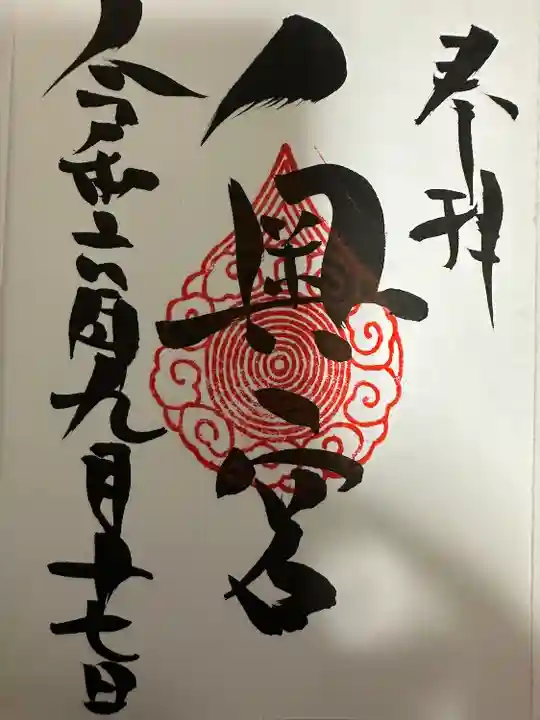 奉拝
奥宮
令和六年九月十七日